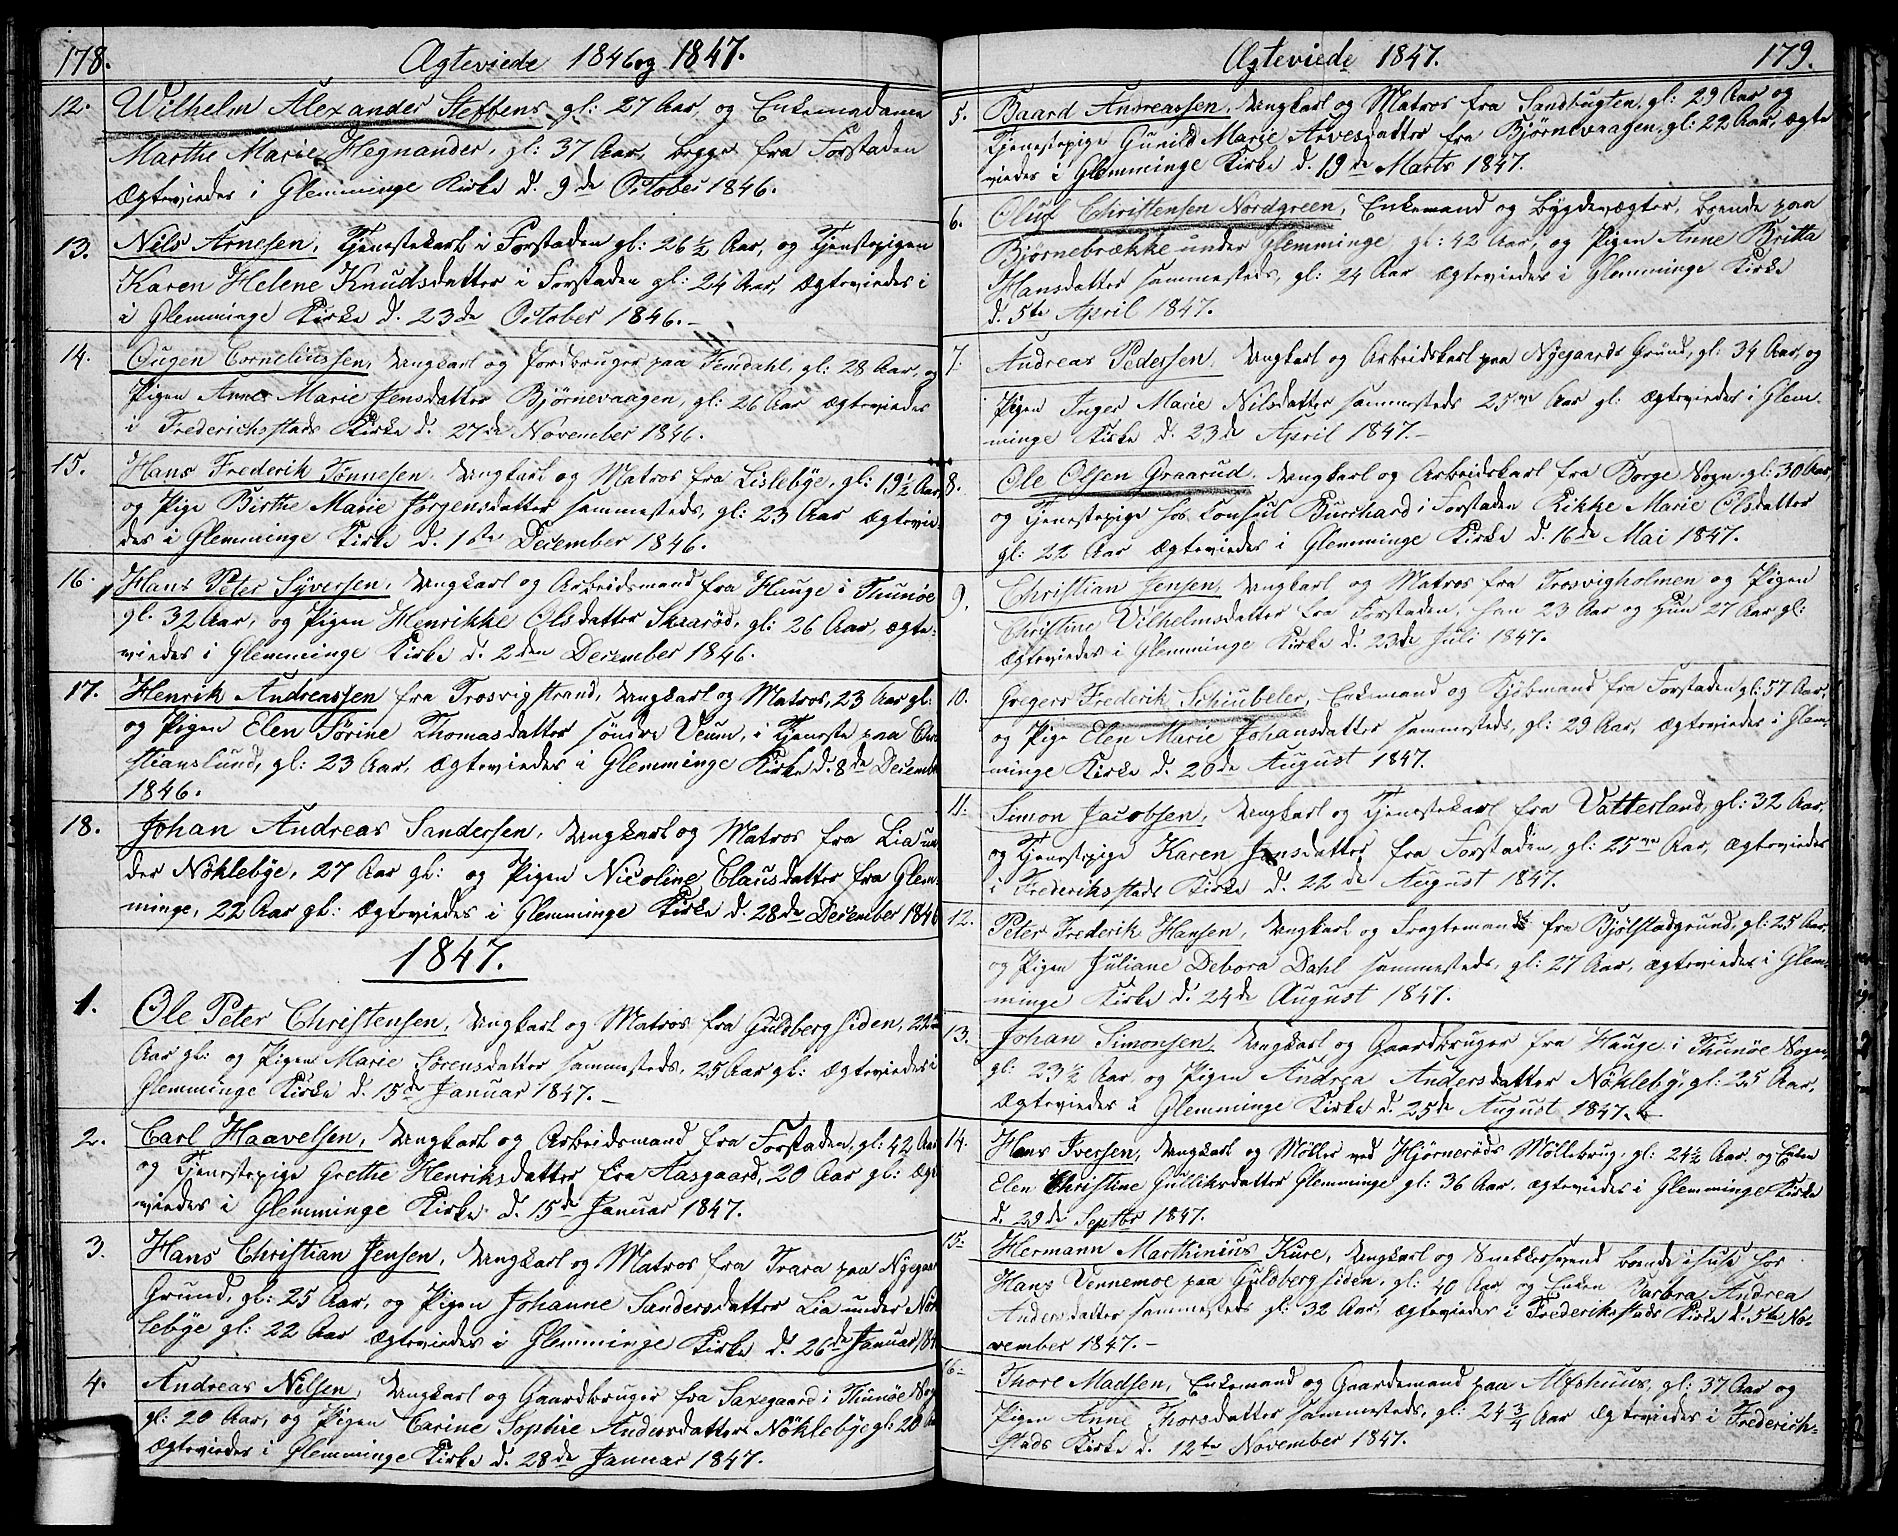 178.
Ægteviede 1846 og 1847.
12. Wilhelm Alexander Steffens gl: 27 Aar, og Enkemadame
Marthe Marie Hegnander, gl: 37 Aar, begge fra Forstaden
Ægteviedes i Glemminge Kirke d. 9de October 1846.
13. Nils Arnesen, Tjenestekarl i Forstaden gl: 26 ½ Aar, og Tjenstepigen
Karen Helene Knudsdatter i Forstaden gl: 24 Aar, Ægteviedes i
i Glemminge Kirke d. 23de October 1846.-
14. Ougen Corneliussen, Ungkarl og Jordbruger paa Femdahl, gl: 28 Aar, og
Pigen Anne Marie Jensdatter Bjørnevaagen, gl: 26 Aar Ægteviedes
i Frederichsstads Kirke d. 27de November 1846.
15. Hans Frederik Tønnesen, Ungkarl og Matros fra Lislebye, gl: 19½ Aar,
og Pige Birthe Marie Jørgensdatter sammesteds, gl: 23 Aar Ægtevie-
des i Glemminge Kirke d. 1ste December 1846.
16. Hans Peter Syversen, Ungkarl og Arbeidsmand fra Hauge i Thunøe
gl. 32 Aar, og Pigen Henrikke Olsdatter Skaarød, gl: 26 Aar, ægte-
viedes i Glemminge Kirke d. 2den December 1846.
17. Henrik Andreassen fra Trosvigstrand, Ungkarl og Matros, 23 Aar gl:
og Pigen Elen Sørine Thomasdatter søndre Veum, i Tjeneste paa Chri
stianslund, gl: 23 Aar, Ægteviedes i Glemminge Kirke d. 8de Decemb
1846.
18. Johan Andreas Sandersen, Ungkarl og Matros fra Lia un
der Nøklebye, 27 Aar gl: og Pigen Nicoline Clausdatter fra Glem-
minge, 22 Aar gl: Ægteviedes i Glemminge Kirke d. 28de December 1846
1847.
1. Ole Peter Christensen, Ungkarl og Matros fra Guldbergsiden, 22
Aar gl: og Pigen Marie Sørensdatter sammesteds, 25 Aar gl: Ægteviedes i
Glemminge Kirke d. 15de Januar 1847.-
2. Carl Haavelsen, Ungkarl og Arbeidsmand fra Forstaden, gl: 42 Aar
og Tjenestepige Grethe Henriksdatter fra Aasgaard, 20 Aar gl: Ægte
viedes i Glemminge Kirke d. 15de Januar 1847.
3. Hans Christian Jensen, Ungkarl og Matros fra Trara paa Nygaar
Grund, gl: 25 Aar, og Pigen Johanne Sandersdatter Lia under Nök
lebye gl: 22 Aar Ægteviedes i Glemminge Kirke d. 26de Januar, 184
4. Andreas Nilsen, Ungkarl og Gaardbruger fra Saxegaard i Thunøe Sogn
gl: 20 Aar, og Pigen Carine Sophie Andersdatter Nöklebye gl: 20 Aar
Ægteviedes i Glemminge Kirke d. 28de Januar 1847.
Ægteviede 1847.
179.
5. Baard Andreassen, Ungkarl og Matros fra Sandbugten, gl: 29 Aar og
Tjenestepige Gunild Marie Arvesdatter fra Bjørnevaagen, gl: 22 Aar, ægte
viedes i Glemminge Kirke d. 19de Marts 1847.
6. Oluf Christensen Nordgreen, Enkemand og Bygdevægter, boende paa
Bjørnebrække under Glemminge, gl: 42 Aar, og Pigen Anne Britta
Hansdatter sammesteds, gl: 24 Aar Ægteviedes i Glemminge Kirke
d. 5te April 1847.
7. Andreas Pedersen, Ungkarl og Arbeidskarl paa Nygaards Grund, gl: 34 Aar, og
Pigen Inger Marie Nilsdatter sammesteds 25 Aar gl: Ægteviedes i Glem-
minge Kirke d. 23de April 1847.-
8. Ole Olsen Graarud, Ungkarl og Arbeidskarl fra Borge Sogn gl: 30 Aar,
og Tjenestepige hos Consul Burchard i Forstaden Kikke Marie Olsdatter
gl: 22 Aar Ægteviedes i Glemminge Kirke d. 16de Mai 1847.
9. Christian Jensen, Ungkarl og Matros fra Trosvigholmen og Pigen
Christine Vilhelmsdatter fra Forstaden, han 23 Aar og Hun 27 Aar gl:
Ægteviedes i Glemminge Kirke d. 23de Juli 1847.
10. Gregers Frederik Schiubeler, Enkemand og Kjøbmand fra Forstaden gl: 57 Aar,
og Pige Elen Marie Johansdatter sammesteds, gl: 29 Aar, Ægteviedes i Glem-
minge Kirke d. 20de August 1847.
11. Simon Jacobsen, Ungkarl og Tjenestekarl fra Vatterland, gl: 32 Aar,
og Tjenestepige Karen Jensdatter fra Forstaden, gl: 25 Aar, Ægteviedes
i Frederiksstads Kirke d. 22de August 1847.
12. Peter Frederik Hansen, Ungkarl og Fragtemand fra Bjölstadgrund, gl: 25 Aar,
og Pigen Juliane Debora Dahl sammesteds, gl: 27 Aar, Ægteviedes i Glem-
minge Kirke d. 24de August 1847.
13. Johan Simonsen, Ungkarl og Gaardbruger fra Hauge i Thunøe Sogn,
gl: 23 ½ Aar og Pigen Andrea Andersdatter Nökleby, gl: 25 Aar,
Ægteviedes i Glemminge Kirke d. 25de August 1847.
14. Hans Iversen, Ungkarl og Möller ved Hjørneröds Möllebrug, gl: 24½ Aar og Enken
Elen Christine Gulliksdatter Glemminge gl: 36 Aar, Ægteviedes i Glemminge Kirke
d. 29de Septbr 1847.
15. Hermann Marthinius Kure, Ungkarl og Snekkersvend boende i huse hos
Hans Vennemoe paa Guldbergsiden, gl: 40 Aar og Enken Barbra Andrea
Andersdatter sammesteds gl: 32 Aar, Ægteviedes i Frederiksstads Kirke d. 5te No-
vember 1847.-
16. Thore Madsen, Enkemand og Gaardmand paa Alfshuus, gl: 37 Aar og
Pigen Anne Thorsdatter sammesteds, gl: 24 ¾ Aar Ægteviedes i Frederich-
stads Kirke d. 12te November 1847.